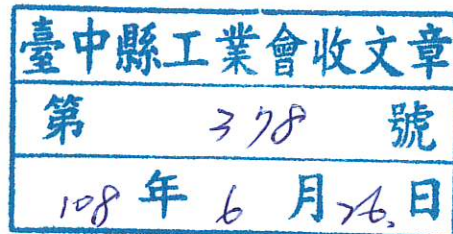 臺中縣工業會收文章
第 378 號
108 年 6 月 26. 日